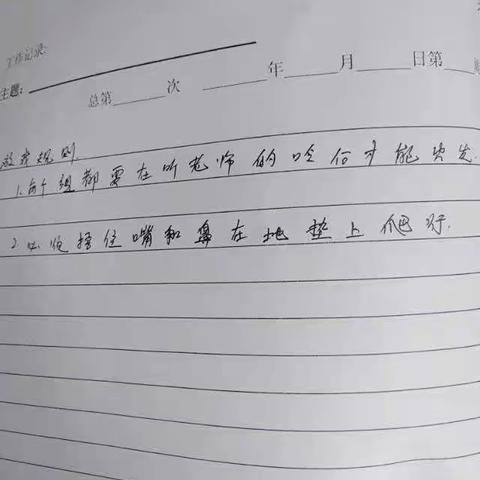 工作记录:
主题:
总第 次 年 月 日第
游戏规则
1.每个组都要在听老师的口令后才能出发
2必须捂住嘴和鼻在地垫上爬行.